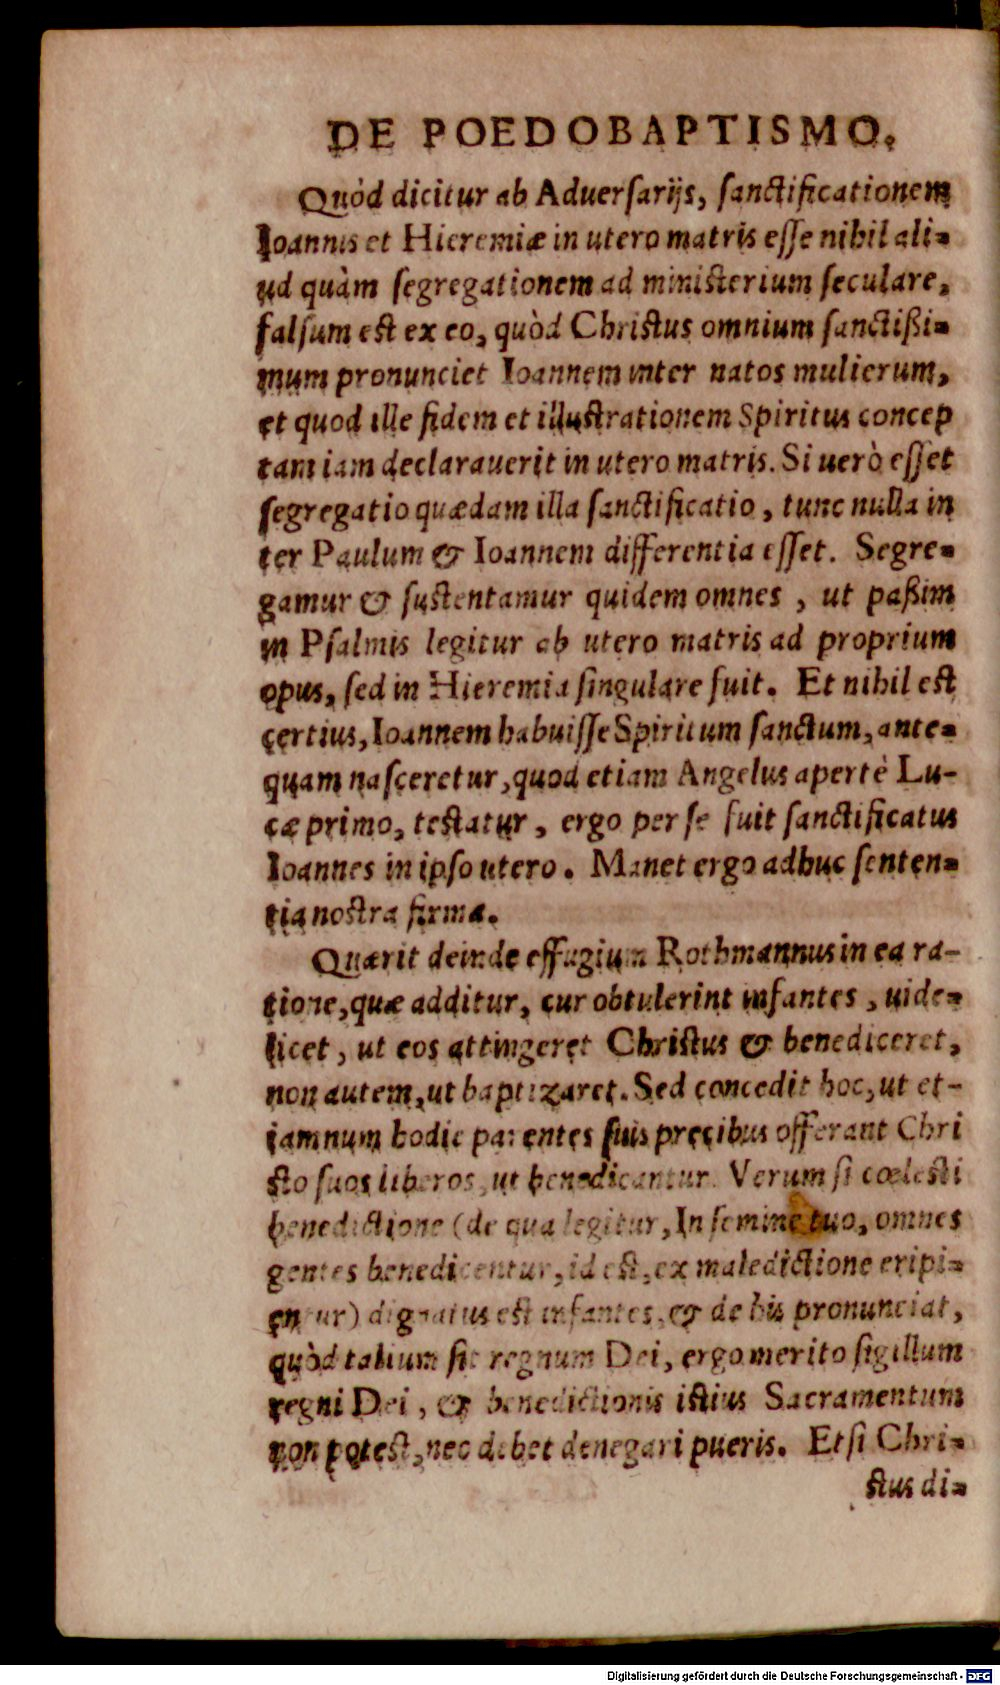 DE POEDOBAPTISMO.
Quòd dicitur ab Aduersarijs, sanctificationem
Ioannis et Hieremiæ in utero matris esse nihil ali-
ud quàm segregationem ad ministerium seculare,
falsum est ex eo, quòd Christus omnium sanctißi-
mum pronunciet Ioannem inter natos mulierum,
et quod ille fidem et illustrationem Spiritus concep
tam iam declarauerit in utero matris. Si uerò esset
segregatio quædam illa sanctificatio, tunc nulla in
ter Paulum & Ioannem differentia esset. Segre-
gamur & sustentamur quidem omnes, ut paßim
in Psalmis legitur ab utero matris ad proprium
opus, sed in Hieremia singulare fuit. Et nihil est
certius, Ioannem habuisse Spiritum sanctum, ante-
quam nasceretur, quod etiam Angelus apertè Lu-
cæ primo, testatur, ergo per se fuit sanctificatus
Ioannes in ipso utero. Manet ergo adhuc senten-
tia nostra firma.
Quærit deinde effugium Rothmannus in ea ra-
tione, quæ additur, cur obtulerint infantes, uide-
licet, ut eos attingeret Christus & benediceret,
non autem, ut baptizaret. Sed concedit hoc, ut et-
iamnum hodie parentes suis precibus offerant Chri
sto suos liberos, ut benedicantur. Verum si cœlesti
benedictione (de qua legitur, In semine tuo, omnes
gentes benedicentur, id est, ex maledictione eripi-
entur) dignatus est infantes, & de his pronunciat,
quòd talium sit regnum Dei, ergo merito sigillum
regni Dei, & benedictionis istius Sacramentum
non potest, nec debet denegari pueris. Etsi Chri-
stus di-
Digitalisierung gefördert durch die Deutsche Forschungsgemeinschaft - DFG